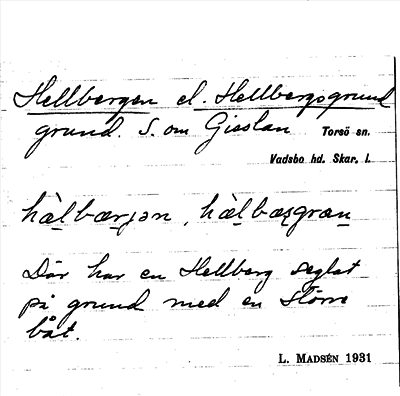 Hellbergen el. Hellbergsgrund
grund. S. om Gisslan Torsö sn.
Vadsbo hd. Skar. l.
hàlbærjən, hàlbæṣgrən
Där har en Hellberg seglat
på grund med en större
båt.
L. MADSÉN 1931